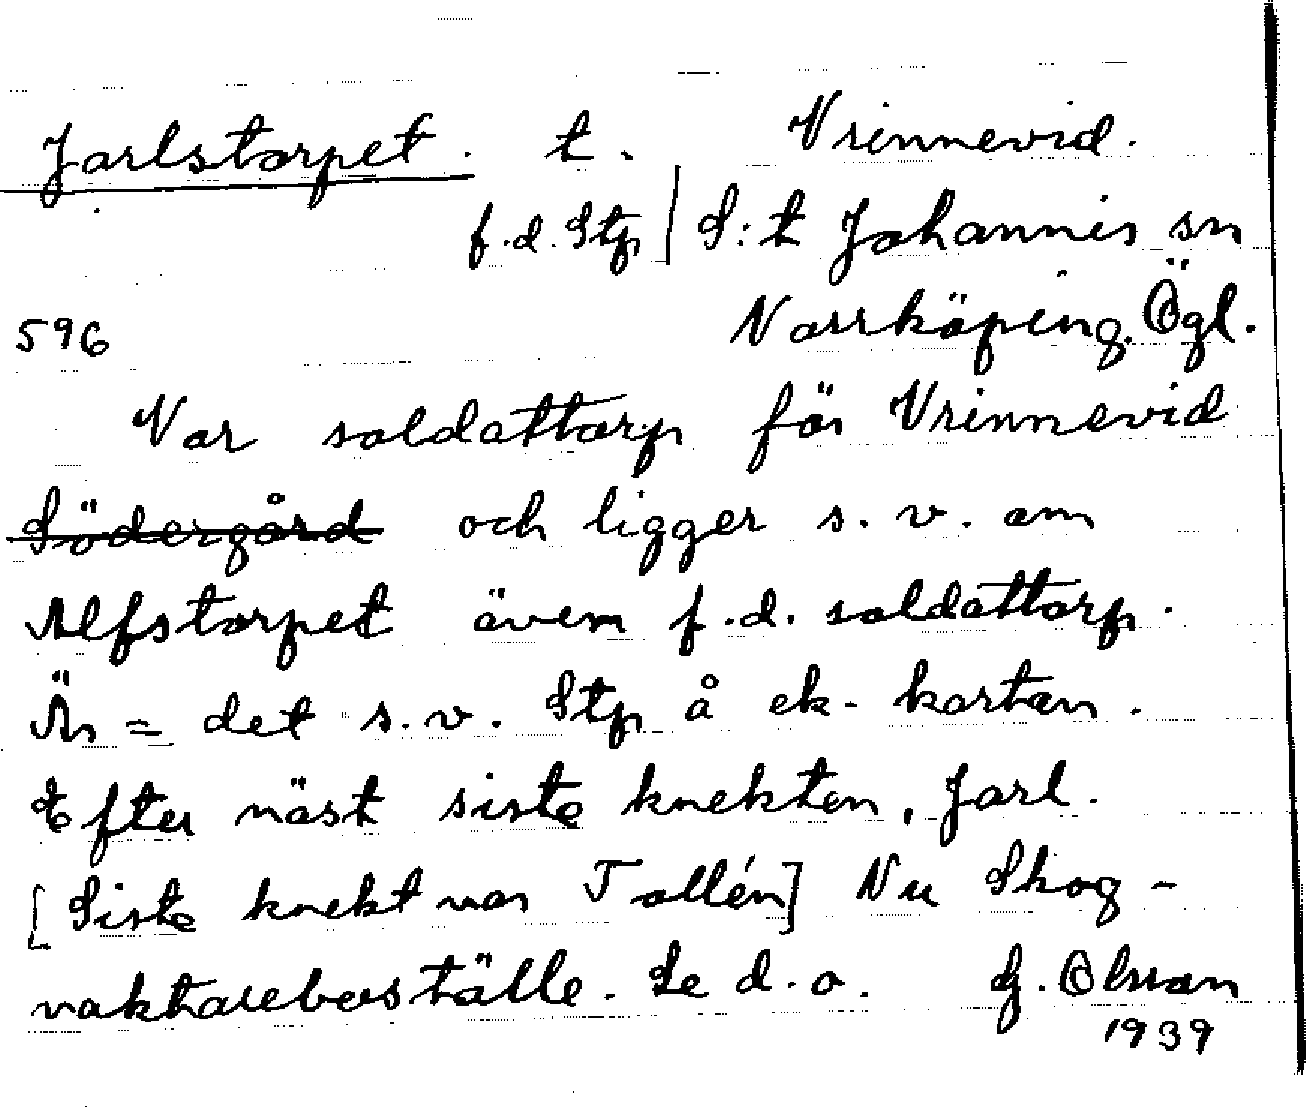 Jarlstorpet. t. Vrinnevid.
f.d. Stp | S:t Johannis sn
596 Norrköping. Ögl.
Var soldattorp för Vrinnevid
Södergård och ligger s. v. om
Alfstorpet även f.d. soldattorp.
Är = det s.v. Stp å ek-kartan.
Efter näst siste knekten, Jarl.
[Siste knekt var Tallén] Nu Skog-
vaktareboställe. Se d.o. G. Olsson
1939